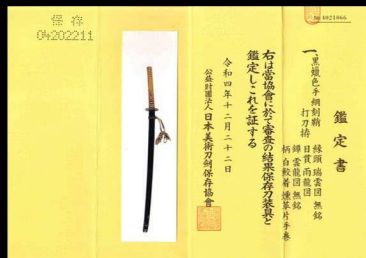 保存
04202211
№ 4021066
鑑定書
一、黒蠟色手綱刻鞘
打刀拵
縁頭 瑞雲図 無銘
目貫 雨龍図
鐔 雲龍図 無銘
柄 白鮫着 燻革片手巻
右は當協會に於て審査の結果保存刀装具と
鑑定しこれを証する
令和四年十二月二十二日
公益財團法人 日本美術刀劍保存協會